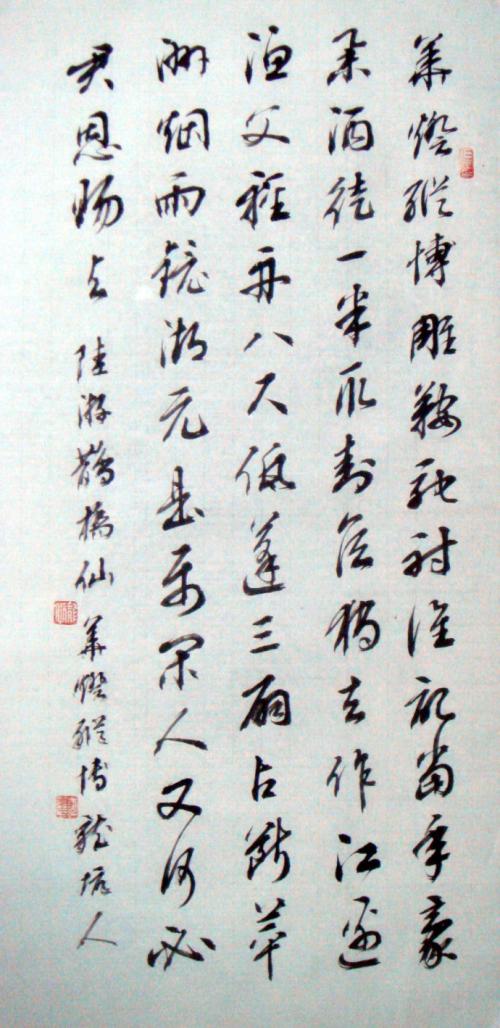 華燈縱博雕鞍馳射誰記當年豪
舉酒徒一半取封侯獨去作江邊
漁父輕舟八尺低蓬三扇占斷苹
洲烟雨鏡湖元是屬閑人又何必
君恩賜与 陸游鵲橋仙華燈縱博 龍人